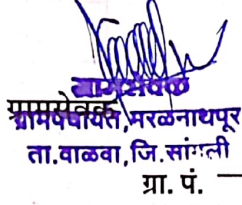 ग्रामसेवक
ग्रामसेवक
ग्रामपंचायत,मरळनाथपूर
ता.वाळवा,जि.सांगली
ग्रा. पं.